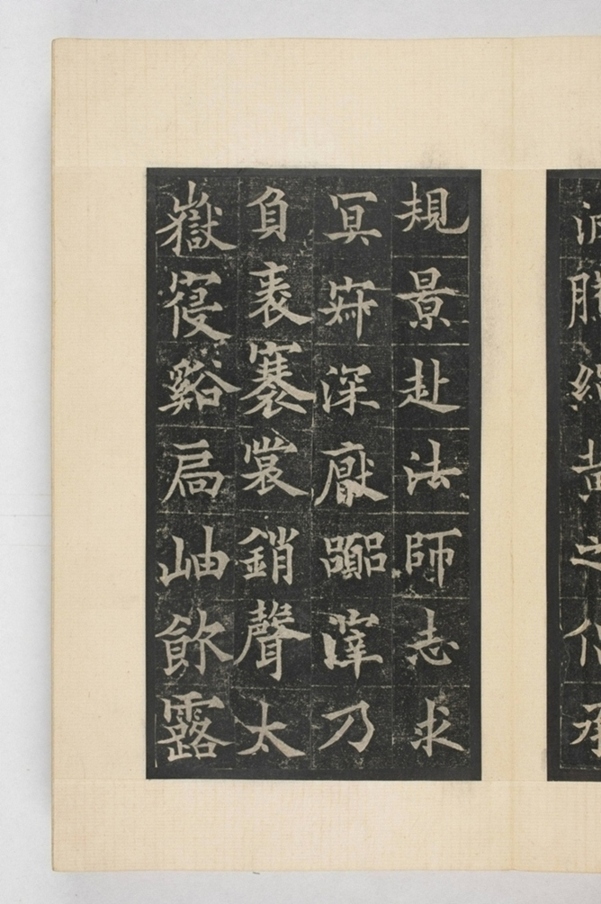 規景赴法師志求
冥寂深厭囂滓乃
負袠褰裳銷聲太
嶽寢谿扃岫飲露